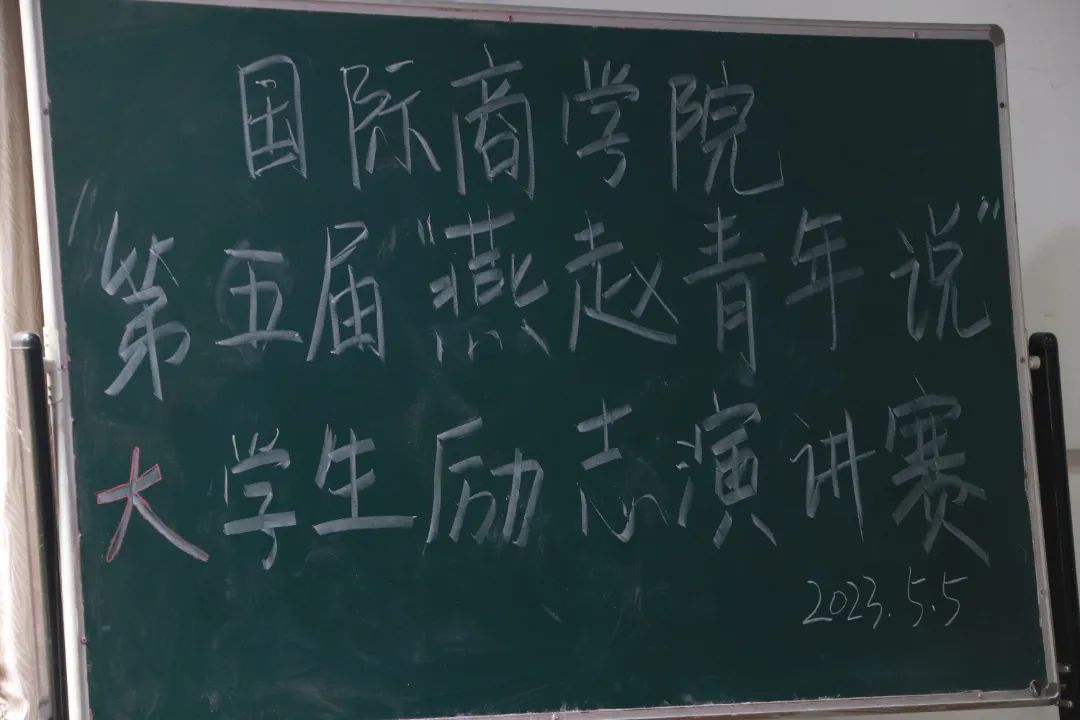 国际商学院
"第五届"燕赵青年说"
大学生励志演讲赛
2023.5.5